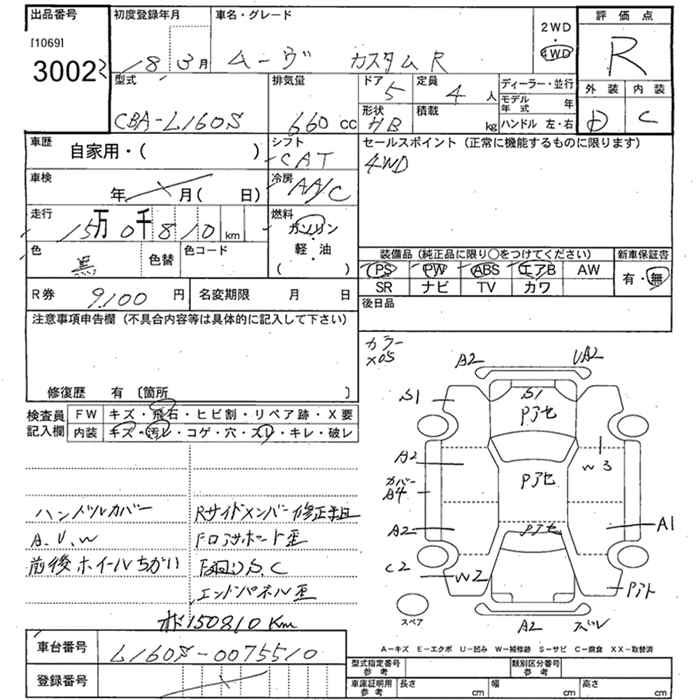 出品番号 初度登録年月 車名・グレード 評価点
[1069]
30023 18 3月 ムーヴ カスタムR 2WD 4WD R
型式 排気量 ドア 5 定員 4人 ディーラー・並行 外装 内装
モデル年式 年
CBA-L160S 660cc 形状 HB 積載 kg ハンドル 左・右 D C
車歴 自家用・( ) シフト CAT セールスポイント (正常に機能するものに限ります)
4WD
車検 年 月( 日) 冷房 AA/C
走行 15万0千810km 燃料 ガソリン
軽・油
( )
色 黒 色替 色コード
装備品 (純正品に限り○をつけてください) 新車保証書
PS PW ABS エアB AW 有・無
SR ナビ TV カワ
R券 9,100円 名変期限 月 日 後日品
注意事項申告欄 (不具合内容等は具体的に記入して下さい)
修復歴 有 〔箇所 〕
カラー
X05
検査員記入欄 FW キズ・飛石・ヒビ割・リペア跡・X要
内装 キズ・汚レ・コゲ・穴・スレ・キレ・破レ
A2 UA2
S1 S1
Pアセ
A2 W3
Pアセ
カバー
A4
A2 Pアセ A1
C2 W2 Pバト
スペア A2 ズレ
ハンドルカバー Rサイドメンバー修正歪
A.U.W Fロアサポート歪
前後ホイールちがい F廻りS.C
エンドパネル歪
150810Km
車台番号 L160S-0075510
登録番号
A-キズ E-エクボ U-凹み W-補修跡 S-サビ C-腐食 XX-取替済
型式指定番号 参考 類別区分番号 参考
車庫証明用 参考 長さ cm 幅 cm 高さ cm